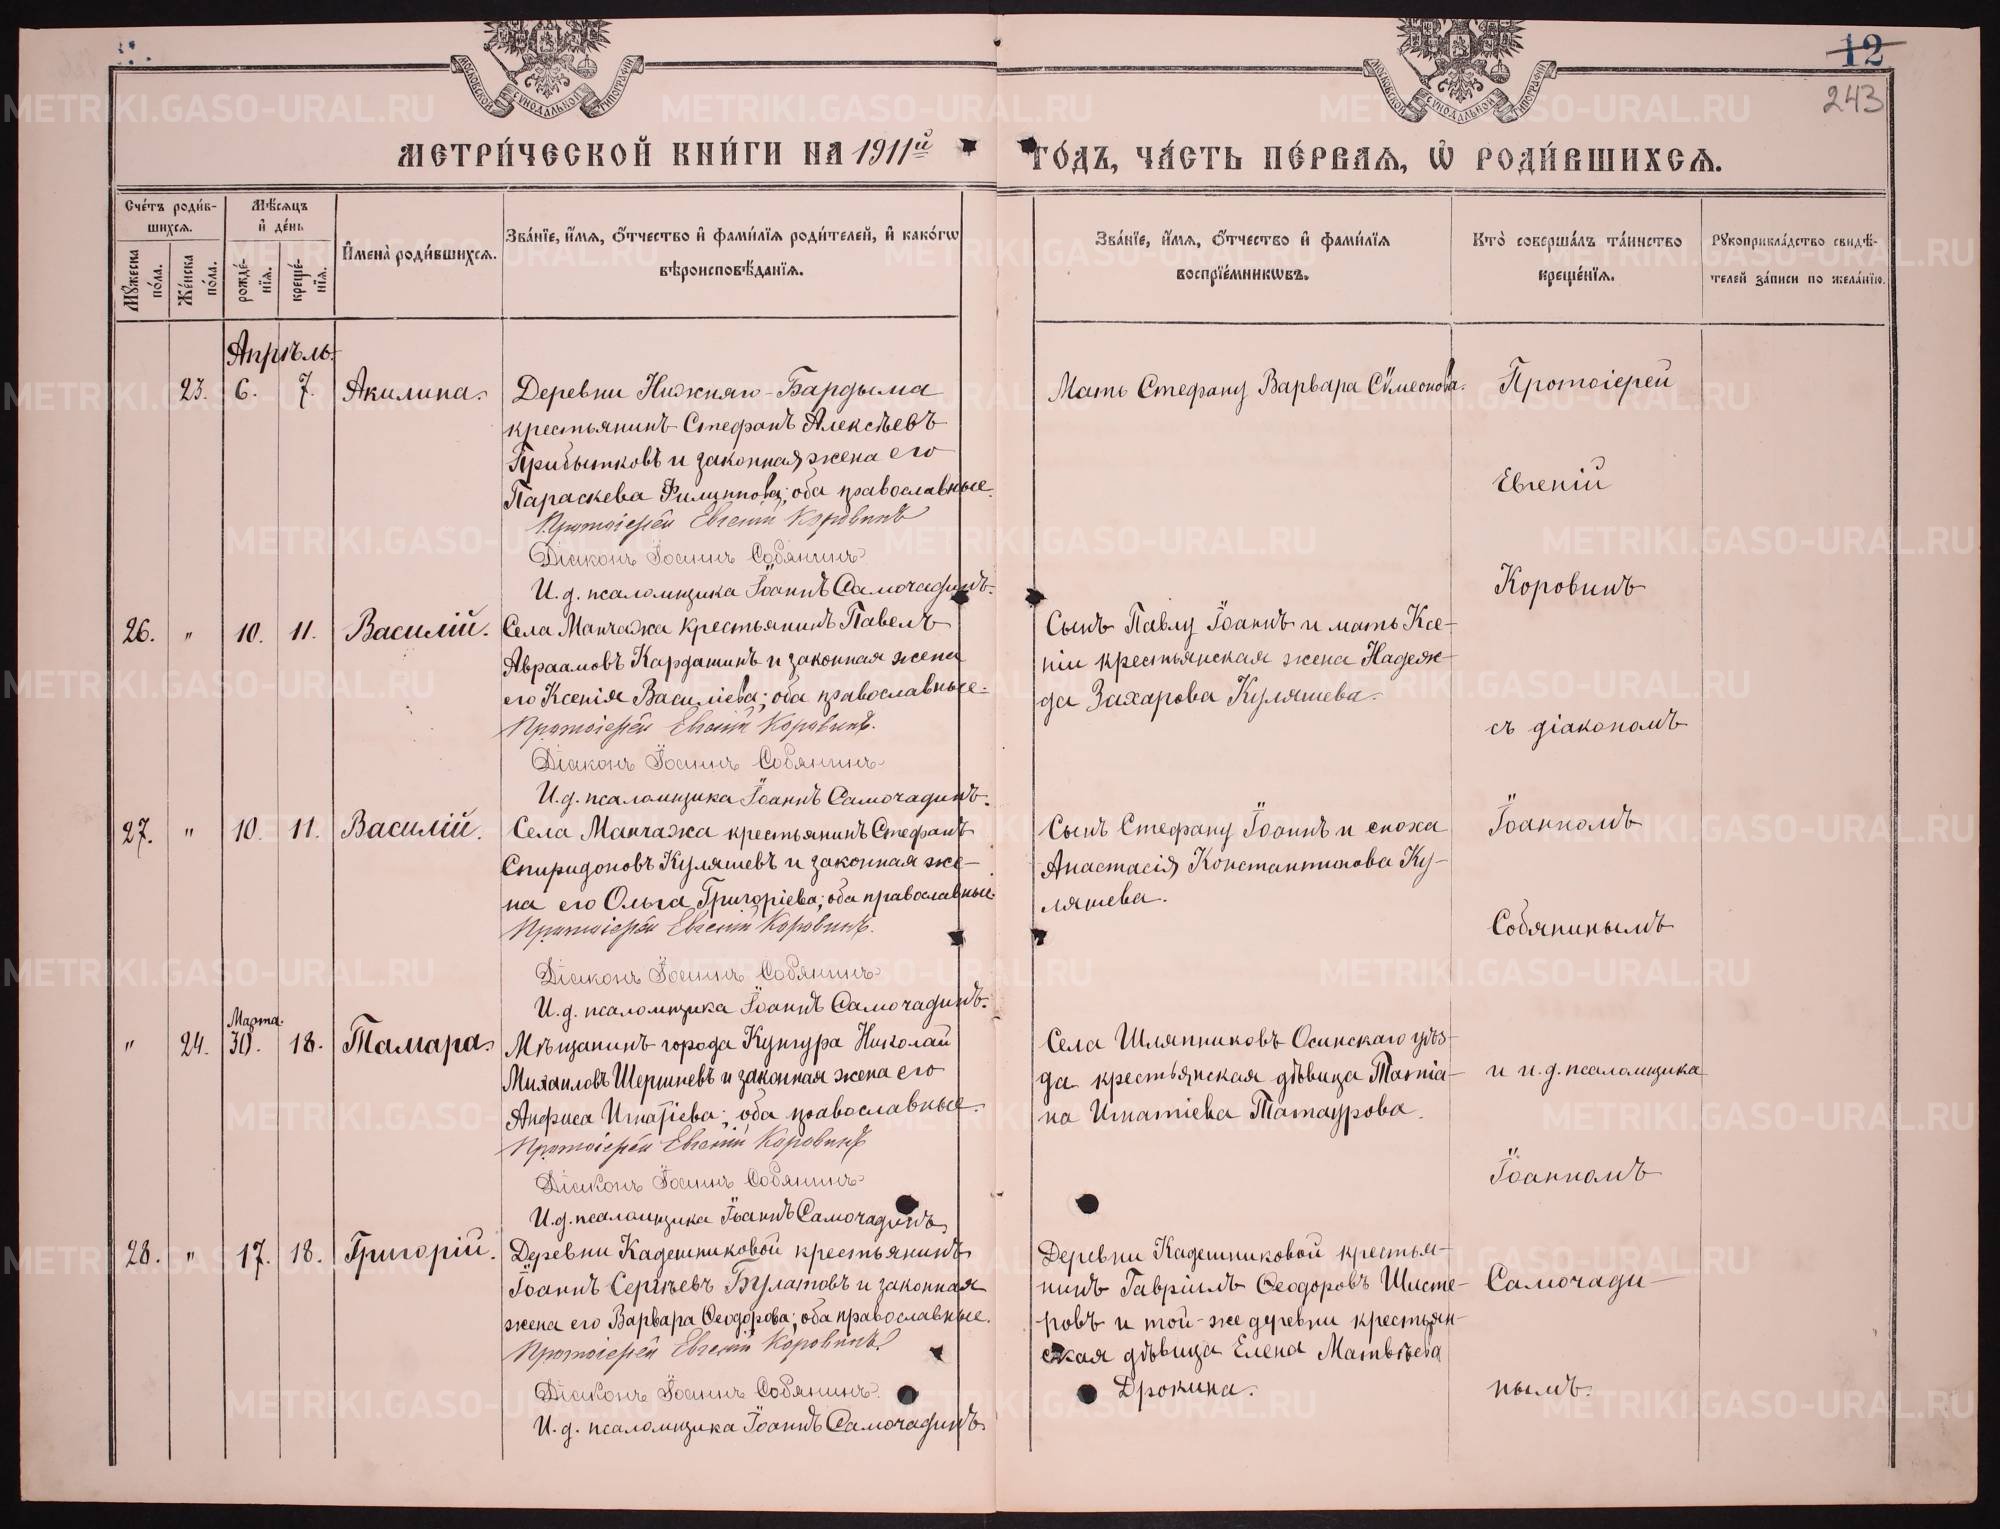 МОСКОВСКОЙ СѴНОДАЛЬНОЙ ТИПОГРАФІИ
МОСКОВСКОЙ СѴНОДАЛЬНОЙ ТИПОГРАФІИ
12
243
МЕТРИ́ЧЕСКОЙ КНИ́ГИ НА 1911й ГО́ДЪ, ЧА́СТЬ ПЕ́РВАѦ, Ѡ҆ РОДИ́ВШИХСѦ.
Сче́тъ роди́в-
шихсѧ.
Мꙋ́жеска по́ла.
Же́нска по́ла.
Мѣ́сѧцъ
и҆ де́нь
рожде́-
нїѧ.
креще́-
нїѧ.
И҆мена̀ роди́вшихсѧ.
Зва́нїе, и҆́мѧ, ѻ҆́тчество и҆ фами́лїѧ роди́телей, и҆ како́гѡ
вѣроисповѣ́данїѧ.
Зва́нїе, и҆́мѧ, ѻ҆́тчество и҆ фами́лїѧ
воспрїе́мникѡвъ.
Кто̀ соверша́лъ та́инство
креще́нїѧ.
Рꙋкоприкла́дство свидѣ́-
телей за́писи по жела́нїю.
Апрѣль.
23. 6. 7. Акилина. Деревни Нижняго-Бардыма
крестьянинъ Стефанъ Алексѣевъ
Прибытковъ и законная жена его
Параскева Филиппова; оба православные.
Протоіерей Евгеній Коровинъ
Діаконъ Іоаннъ Собянинъ
И. д. псаломщика Іоаннъ Самочадинъ.
Мать Стефану Варвара Сѷмеонова.
26. " 10. 11. Василій. Села Манчажа крестьянинъ Павелъ
Авраамовъ Кардашинъ и законная жена
его Ксенія Василіева; оба православные.
Протоіерей Евгеній Коровинъ.
Діаконъ Іоаннъ Собянинъ
И. д. псаломщика Іоаннъ Самочадинъ.
Сынъ Павлу Іоаннъ и мать Ксе-
ніи крестьянская жена Надеж-
да Захарова Куляшева.
27. " 10. 11. Василій. Села Манчажа крестьянинъ Стефанъ
Спиридоновъ Куляшевъ и законная же-
на его Ольга Григоріева; оба православные.
Протоіерей Евгеній Коровинъ.
Діаконъ Іоаннъ Собянинъ
И. д. псаломщика Іоаннъ Самочадинъ.
Сынъ Стефану Іоаннъ и сноха
Анастасія Константинова Ку-
ляшева.
Марта.
" 24. 30. 18. Тамара. Мѣщанинъ города Кунгура Николай
Михаиловъ Шершневъ и законная жена его
Анфиса Игнатіева; оба православные.
Протоіерей Евгеній Коровинъ
Діаконъ Іоаннъ Собянинъ
И. д. псаломщика Іоаннъ Самочадинъ
Села Шляпниковъ Осинскаго уѣз-
да крестьянская дѣвица Татіа-
на Игнатіева Татаурова.
28. " 17. 18. Григорій. Деревни Кадешниковой крестьянинъ
Іоаннъ Сергѣевъ Булатовъ и законная
жена его Варвара Ѳеодорова; оба православные.
Протоіерей Евгеній Коровинъ
Діаконъ Іоаннъ Собянинъ
И. д. псаломщика Іоаннъ Самочадинъ
Деревни Кадешниковой крестья-
нинъ Гавріилъ Ѳеодоровъ Шисте-
ровъ и той-же деревни крестьян-
ская дѣвица Елена Матвѣева
Дрокина.
Протоіерей
Евгеній
Коровинъ
съ діакономъ
Іоанномъ
Собянинымъ
и и. д. псаломщика
Іоанномъ
Самочади-
нымъ.
METRIKI.GASO-URAL.RU